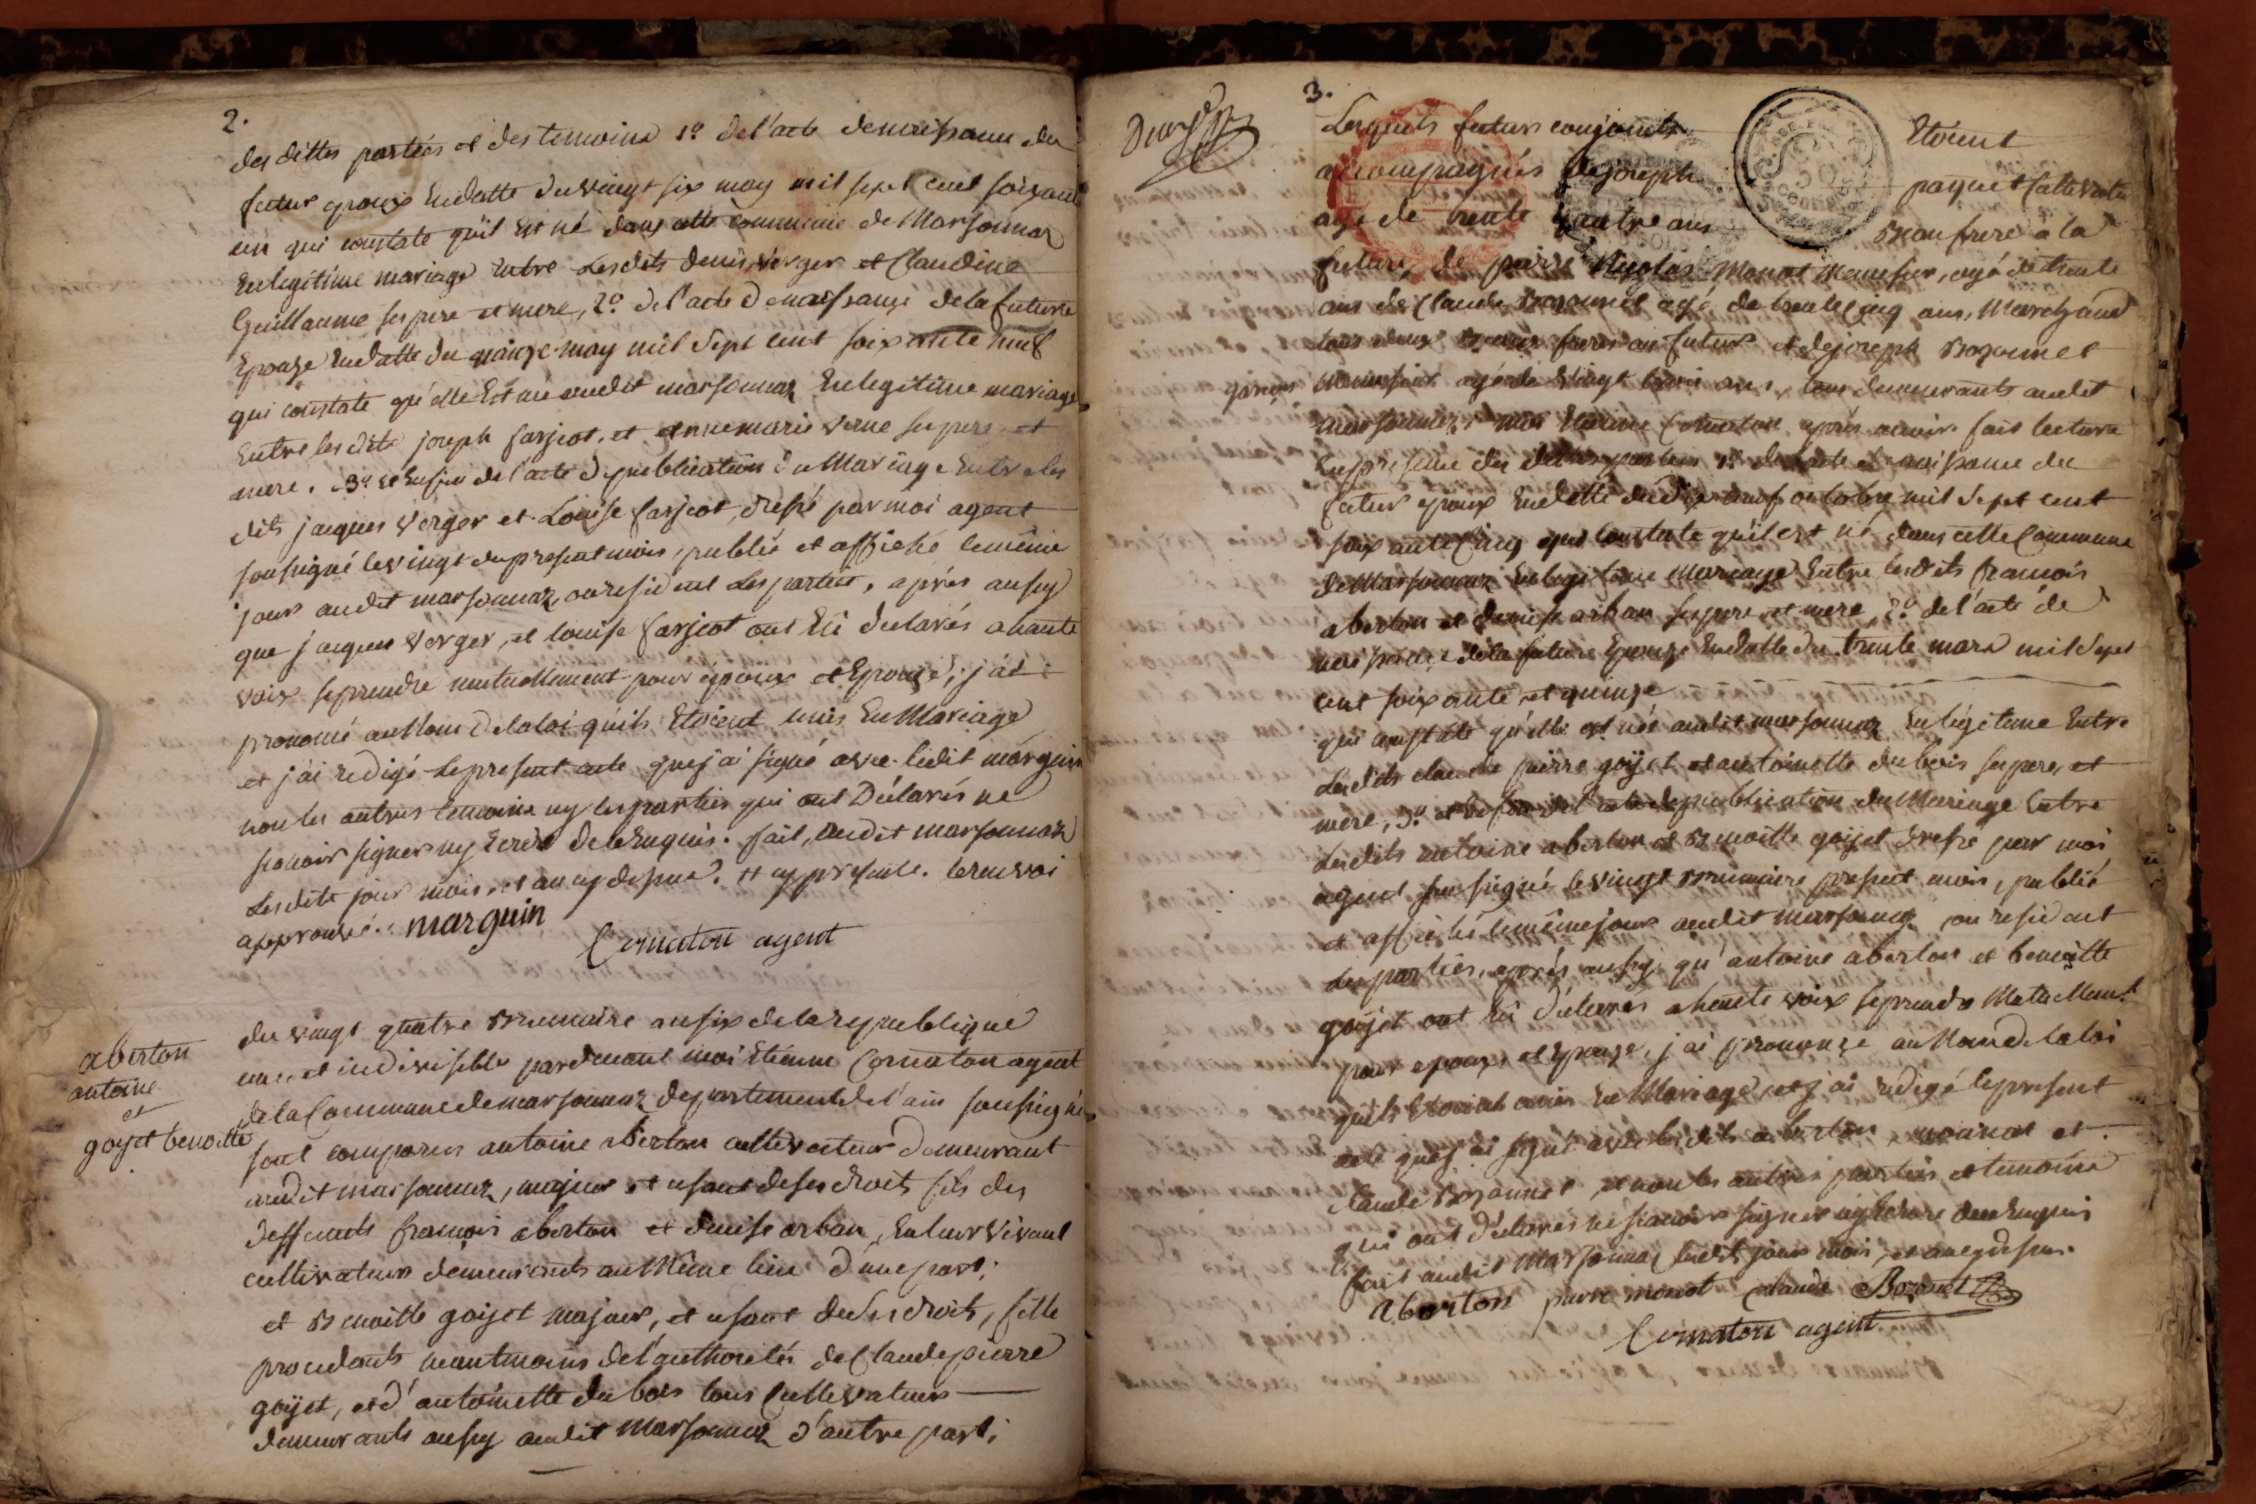 2.
des dittes parties et des temoins 1º de l'acte de naissance du
futur epoux en datte du vingt six may mil sept cent soixante
un qui constate qu'il est né dans cette commune de Marsonnaz
en legitime mariage entre lesdits denis verger et Claudine
Guillaume ses pere et mere, 2º de l'acte de naissance de la future
Epouze en datte du quinze may mil sept cent soixante neuf
qui constate qu'elle est née audit marsonnaz en legitime mariage
entre lesdits joseph farjeot, et annemarie verne ses pere et
mere. 3º et enfin de l'acte de publication du Mariage entre les
dits jacques verger et Louise farjeot, dressé par moi agent
soussigné le vingt du present mois, publié et affiché le même
jour audit marsonnaz, ou resident les parties, après aussy
que jacques verger, et louise farjeot ont été declarés a haute
voix se prendre mutuellement pour époux et Epouze, j'ai
prononcé au Nom de la loi qu'ils etoient unis en Mariage
et j'ai redigé le present acte que j'ai signé avec ledit marguin
non les autres temoins ny les parties qui ont Déclarés ne
scavoir signer ny Ecrire de ce enquis. fait, audit marsonnaz
lesdits jour mois et an cy dessus. et cy presente. le renvoi
approuvé. marguin
Cornaton agent
aberton
antoine
et
goyet benoitte
du vingt quatre Brumaire an six de la republique
une et indivisible pardevant moi Etienne Cornaton agent
de la Commune de marsonnaz departement de l'ain soussigné
sont comparus antoine aberton cultivateur demeurant
audit marsonnaz, majeur et usant de ses droits fils des
deffunts francois aberton et denise arban, en leur vivant
cultivateurs demeurants au Même lieu d'une part;
et Benoitte goyet majeur, et usant de ses droits, fille
procedants neantmoins de l'authorités de Claude pierre
goyet, et d'antoinette du bois tous Cultivateurs
demeurants aussy audit Marsonnaz d'autre part;
3.
Lesquels futurs conjoints Etoient
accompagnés de joseph paquet Cultivateur
agé de trente quatre ans Beau frere a la
future, de pierre Nicolas Monat Manesier, agé de trente
ans de Claude Bozonnet agé de trente cinq ans, Marchand
tous deux Beaux freres au futur et de joseph Bozonnet
garçon
agé de vingt trois ans, tous demeurants audit
marsonnaz, moi Etienne Cornaton après avoir fait lecture
en presence des dittes parties 1º de l'acte de naissance du
futur epoux en datte du dix neuf octobre mil sept cent
soixante Cinq qui constate qu'il est né dans cette Commune
de Marsonnaz en legitime Mariage entre lesdits francois
aberton et denise arban ses pere et mere, 2º de l'acte de
naissance de la future Epouze en datte du trente mars mil sept
cent soixante et quinze
qui constate qu'elle est née audit marsonnaz en legitime entre
lesdits claude pierre goyet et antoinette dubois ses pere, et
mere, 3º et enfin de l'acte de publication du Mariage entre
lesdits antoine aberton et Benoitte goyet dressé par moi
agent soussigné le vingt Brumaire present mois, publié
et affiché le même jour audit marsonnaz ou resident
les parties, après aussy qu'antoine aberton et benoitte
goyet ont été declarés a haute voix se prendre Mutuellement
pour epoux, et Epouze, j'ai prononcé au Nom de la loi
qu'ils Etoient unis en Mariage, et j'ai redigé le present
acte que j'ai signé avec lesdits aberton, monat et
Claude Bozonnet, et non les autres parties et temoins
qui ont declarés ne scavoir signer ny Ecrire de ce enquis
fait audit Marsonnaz ledit jour mois, et an cy dessus.
Aberton pierre monat claude Bozonet
Cornaton agent